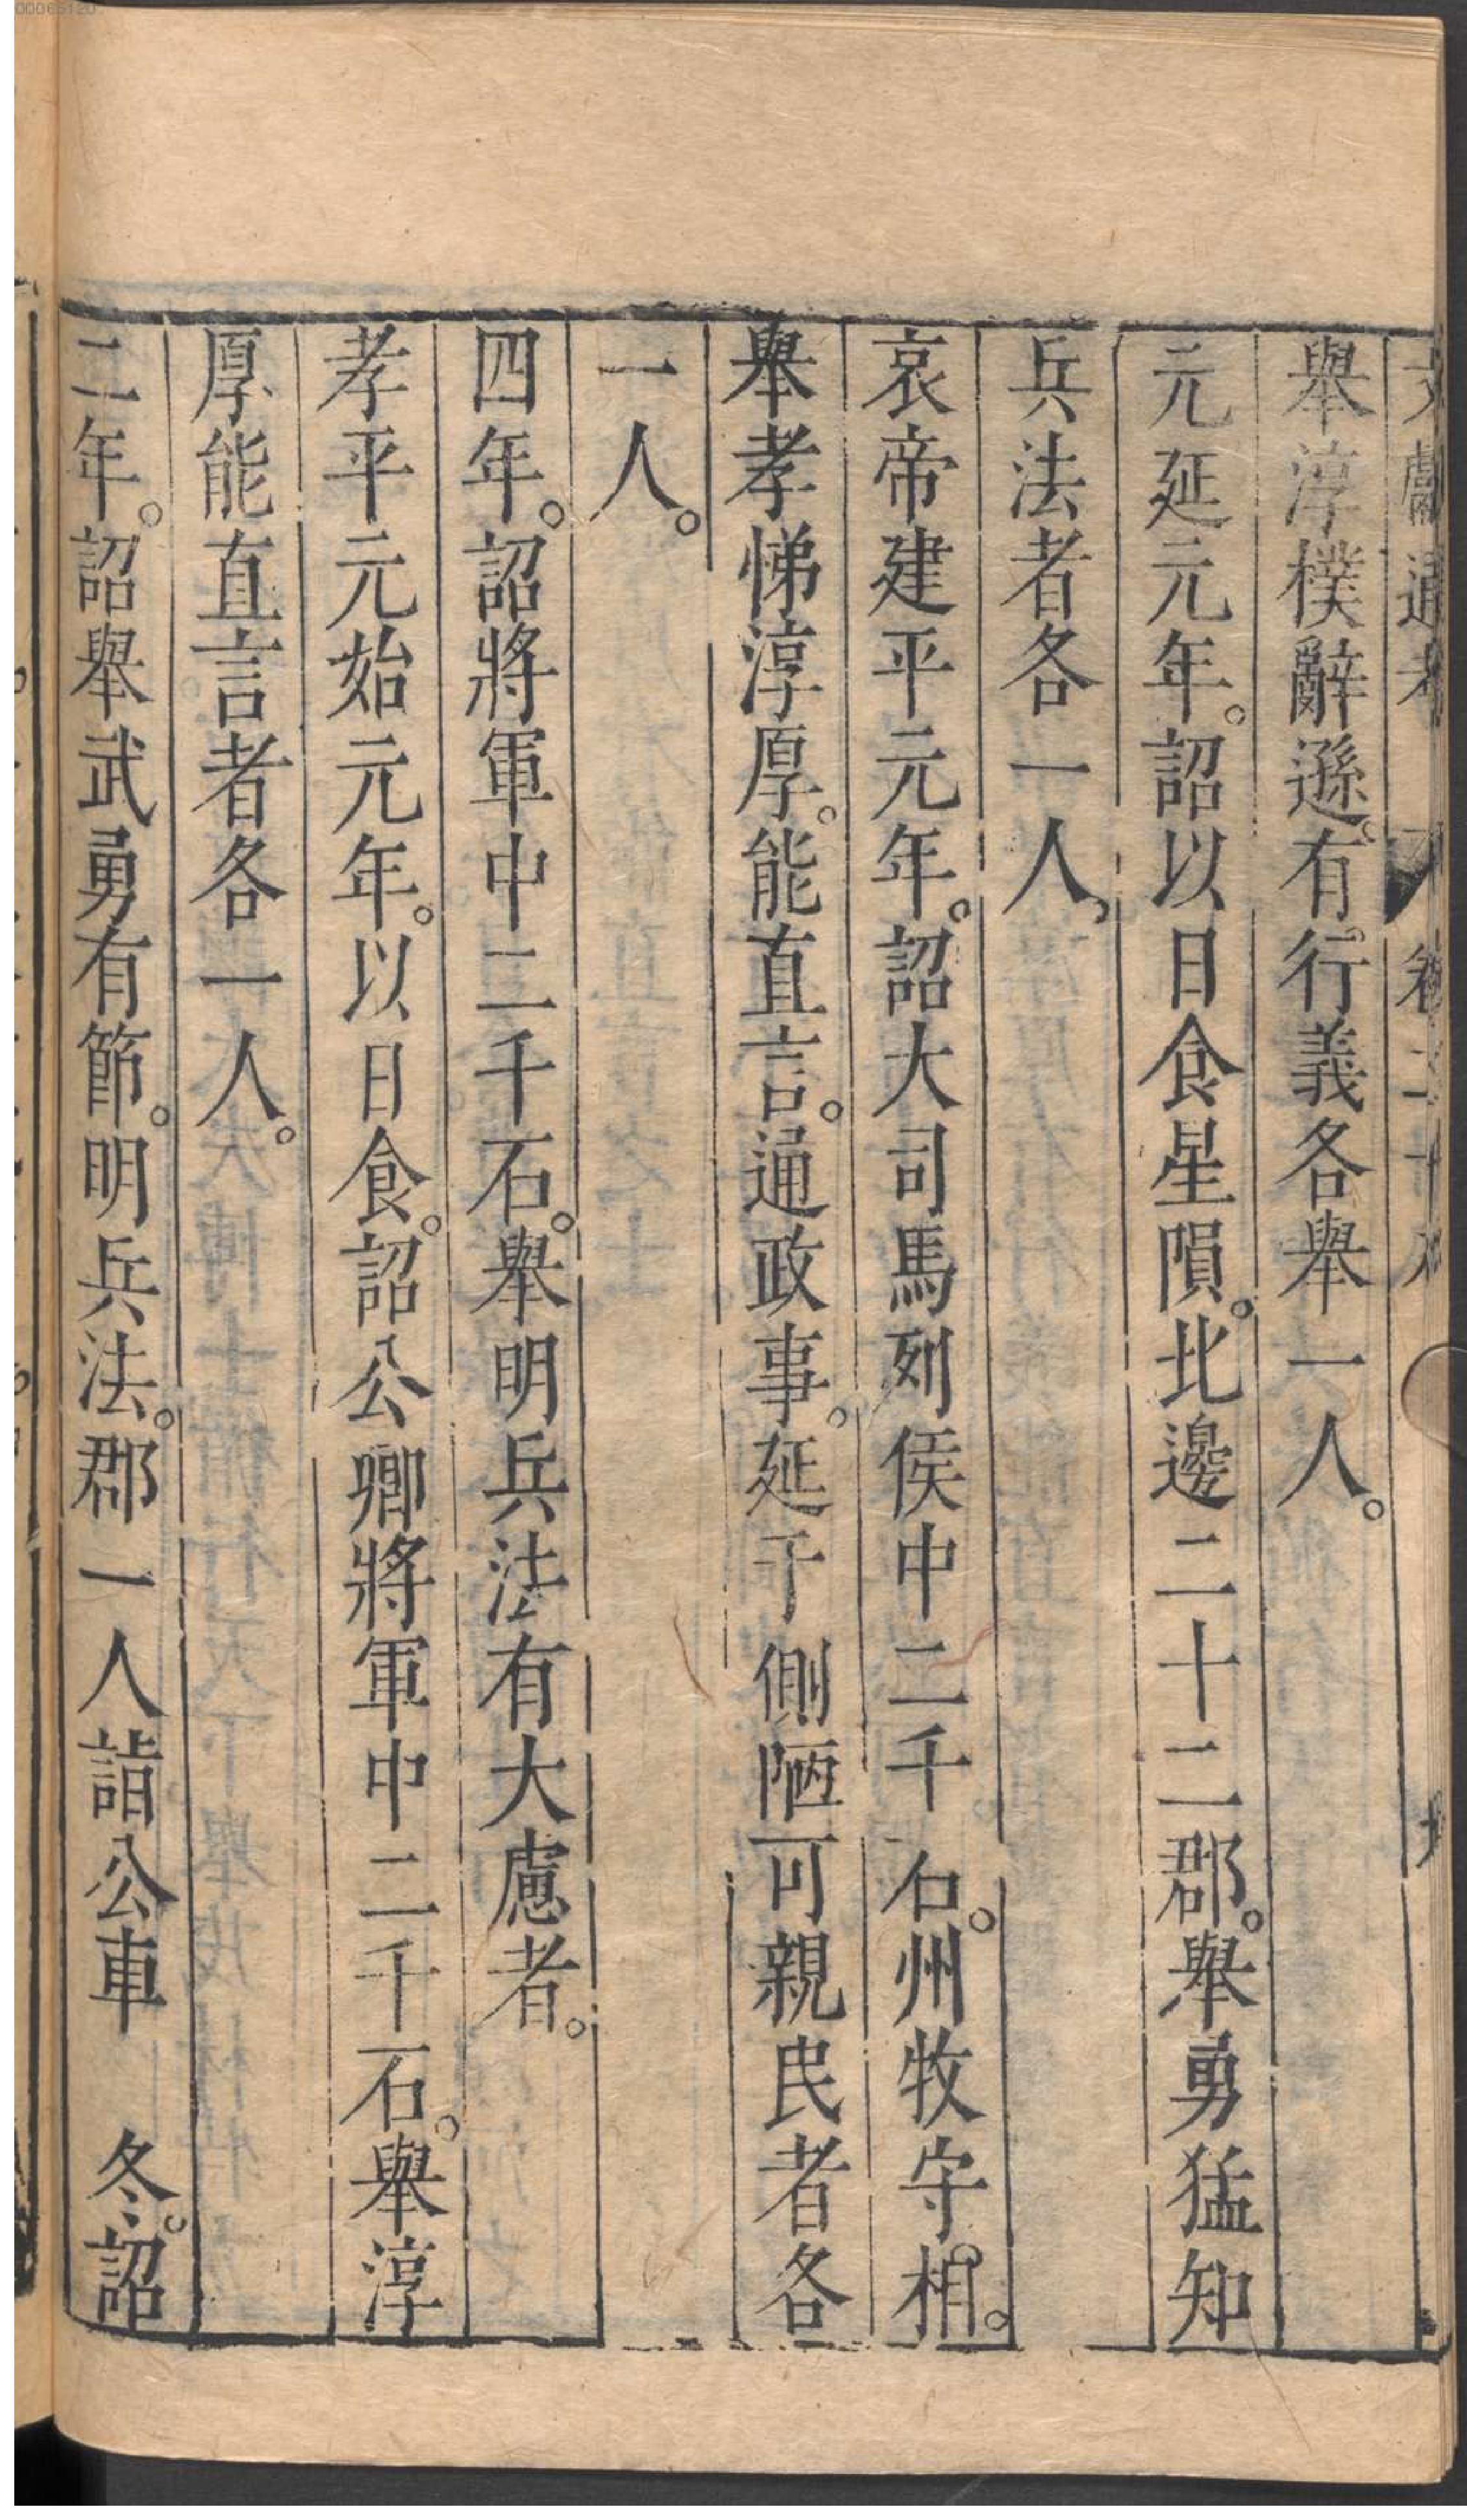 00065120
文獻通考 卷之三十
舉淳樸辭遜。有。行義各舉一人。
元延元年。詔以日食星隕。北邊二十二郡。舉勇猛知
兵法者各一人。
哀帝建平元年。詔大司馬列侯中二千石。州牧守。相。
舉孝悌淳厚。能直言。通政事。延于側陋可親民者各
一人。
四年。詔將軍中二千石。舉明兵法有大慮者。
孝平元始元年。以日食。詔公卿將軍中二千石。舉淳
厚能直言者各一人。
二年。詔舉武勇有節。明兵法。郡一人詣公車 冬。詔